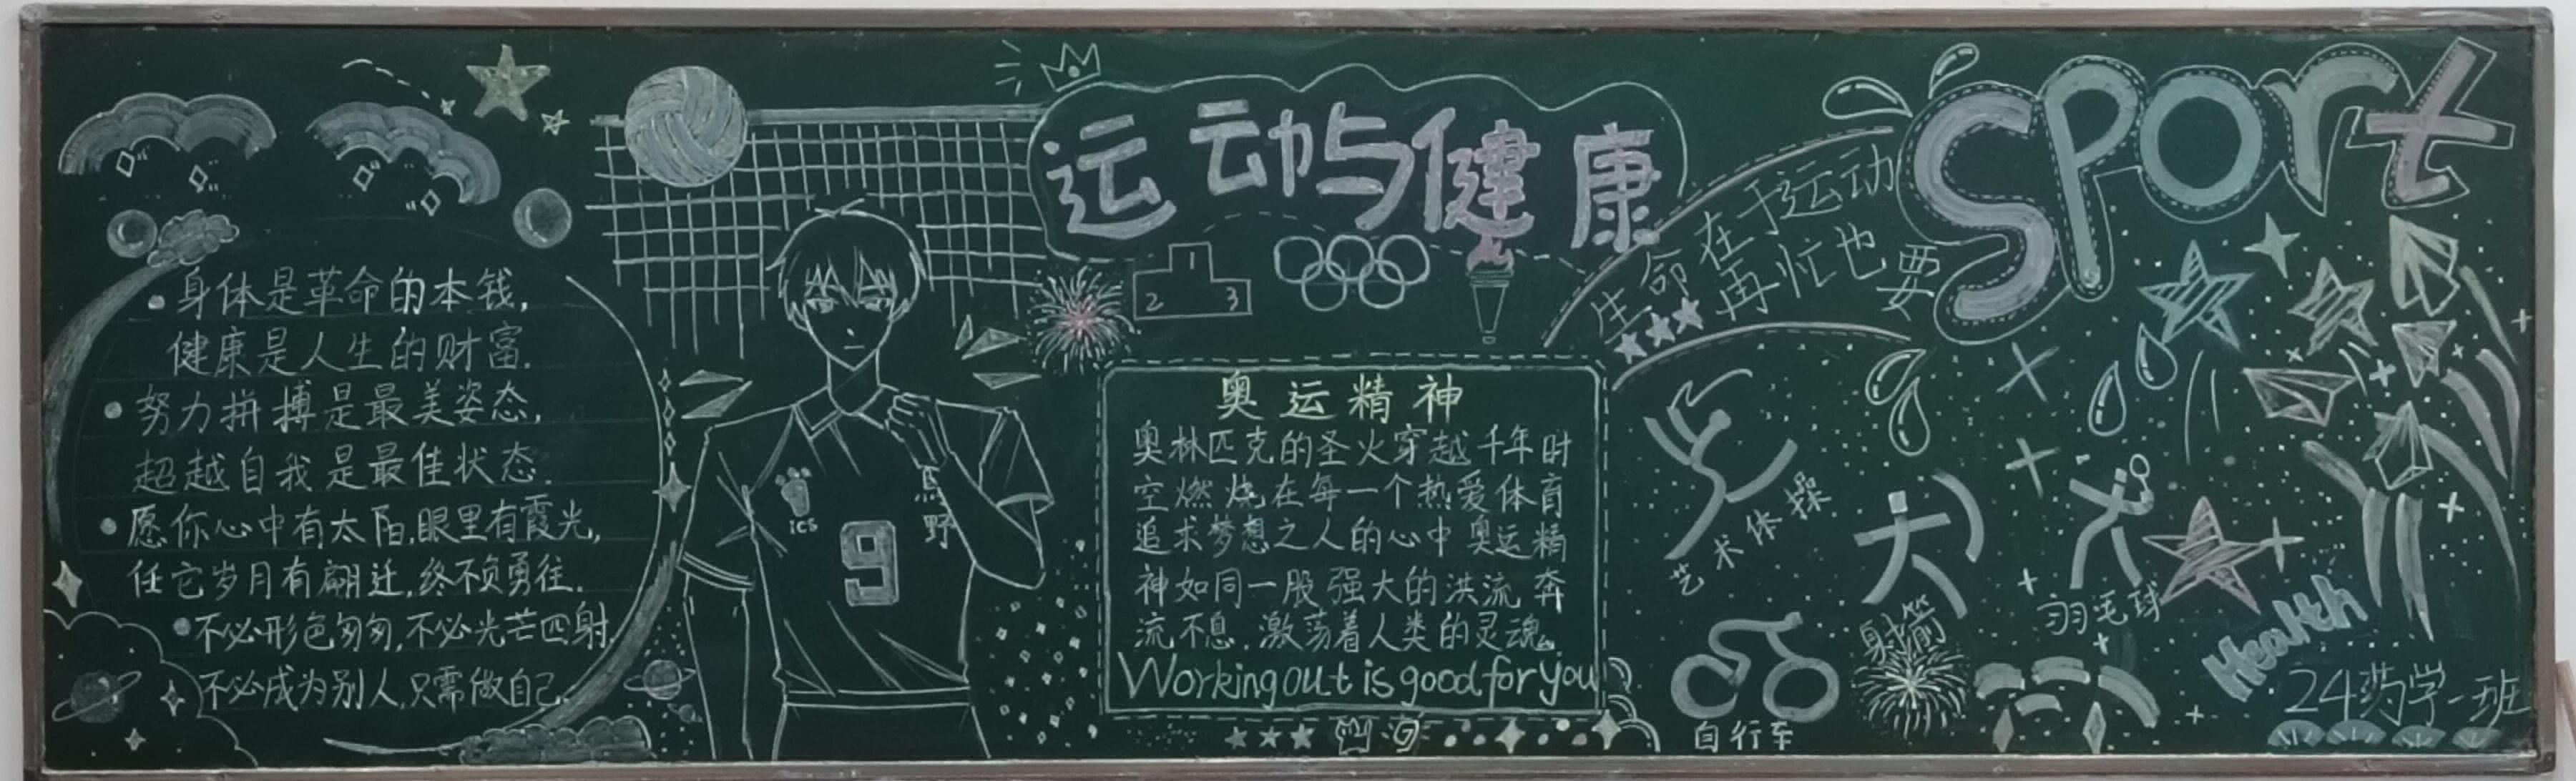 身体是革命的本钱,
健康是人生的财富.
努力拼搏是最美姿态,
超越自我是最佳状态.
愿你心中有太阳,眼里有霞光,
任它岁月有翩迁,终不负勇往.
不必形色匆匆,不必光芒四射
不必成为别人,只需做自己.
ics
黑
野
9
运动与健康
1
2
3
奥运精神
奥林匹克的圣火穿越千年时
空燃烧在每一个热爱体育
追求梦想之人的心中奥运精
神如同一股强大的洪流奔
流不息.激荡着人类的灵魂.
Working out is good for you
生命在于运动
再忙也要
Sport
艺术体操
射箭
羽毛球
自行车
Health
24药学一班